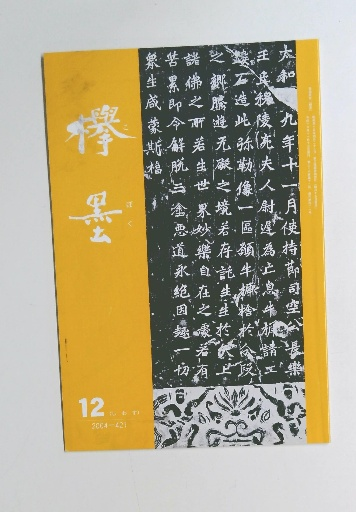 欅墨
ぼく
太和十九年十一月使持節司空公長樂
王丘穆陵亮夫人尉遲為亡息牛橛請工
鏤石造此弥勒像一區願牛橛捨於分段
之鄉騰遊无礙之境若存託生生於天上
諸佛之所若生世界妙樂自在之處若有
苦累即令解脫三塗惡道永絕因趣一切
眾生咸蒙斯福
12
2004